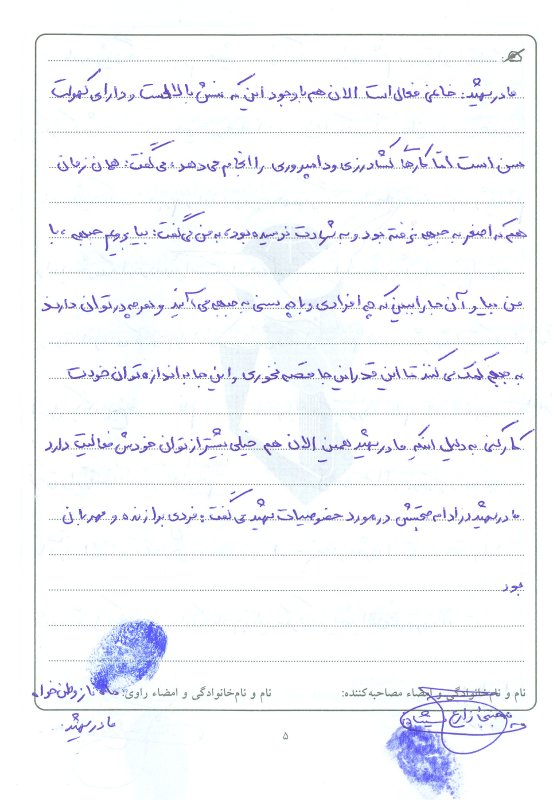 مادر شهید: خانمی فعال است الان هم با وجود این که سنش بالاست و دارای کهولت
سن است اما کارهای کشاورزی و دامپروری را انجام می دهد، می گفت: همان زمان
هم که اصغر به جبهه نرفته بود و به شهادت نرسیده بود، به من می گفت: بیا برویم جبهه، با
من بیا و آن جا را ببین که چه افرادی و با چه سنی به جبهه می آیند و هر چه در توان دارند
به جبهه کمک می کنند تا این قدر این جا غصه نخوری و این جا به اندازه توان خودت
کار کنی به دلیل اینکه مادر شهید همین الان هم خیلی بیشتر از توان خودش فعالیت دارد
مادر شهید در ادامه صحبتش در مورد خصوصیات شهید می گفت: فردی برازنده و مهربان
بود
نام و نام‌خانوادگی و امضاء مصاحبه‌کننده:
نام و نام‌خانوادگی و امضاء راوی: ناز وطن خواه
مادر شهید
زارع
۵